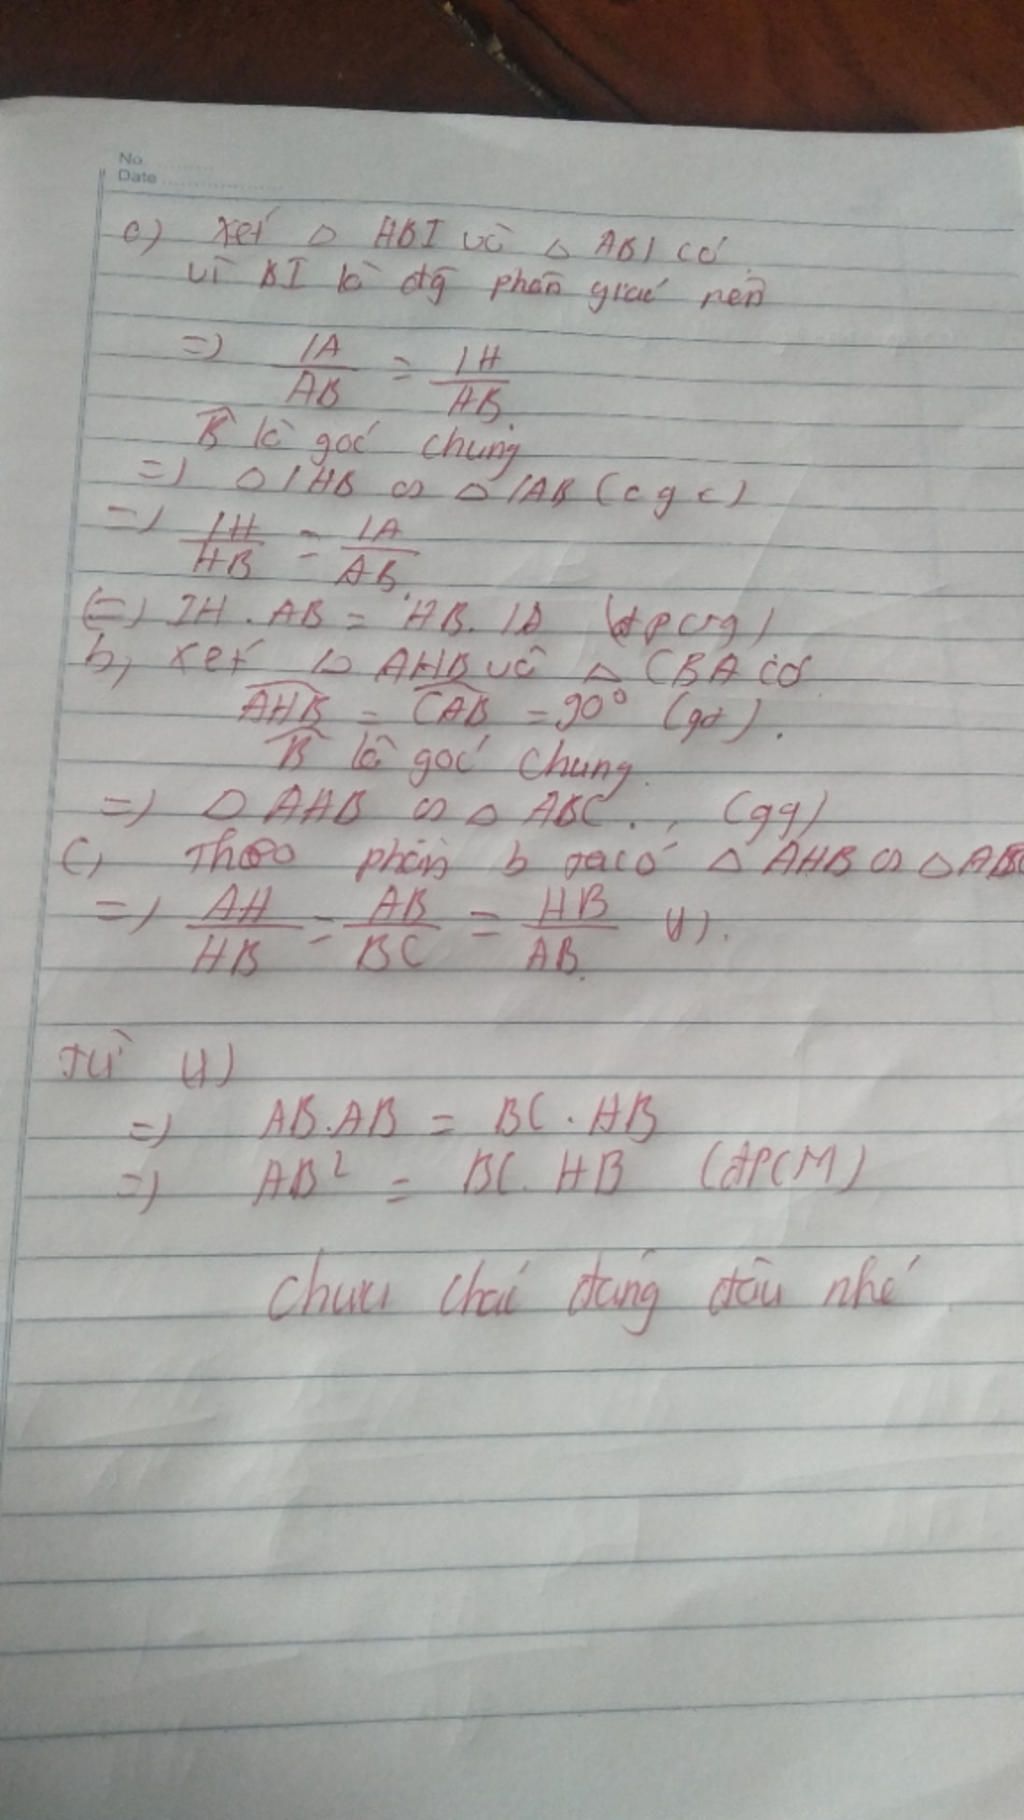 No
Date
a) Xét △ HBI và △ ABI có
Vì BI là đg phân giác nên
=) IA/AB = IH/HB
B̂ là góc chung
=) △ IHB ∽ △ IAB (c g c)
=) IH/HB = IA/AB
(=) IH . AB = HB. IA (đpcm)
b, Xét △ AHB và △ CBA có
AHB = CAB = 90° (gt).
B̂ là góc chung
=) △ AHB ∽ △ ABC. (gg)
C, Theo phần b ta có △ AHB ∽ △ ABC
=) AH/HB = AB/BC = HB/AB (1).
Từ (1)
=) AB.AB = BC . HB
=) AB² = BC. HB (đPCM)
Chưa chắc đúng đâu nhé